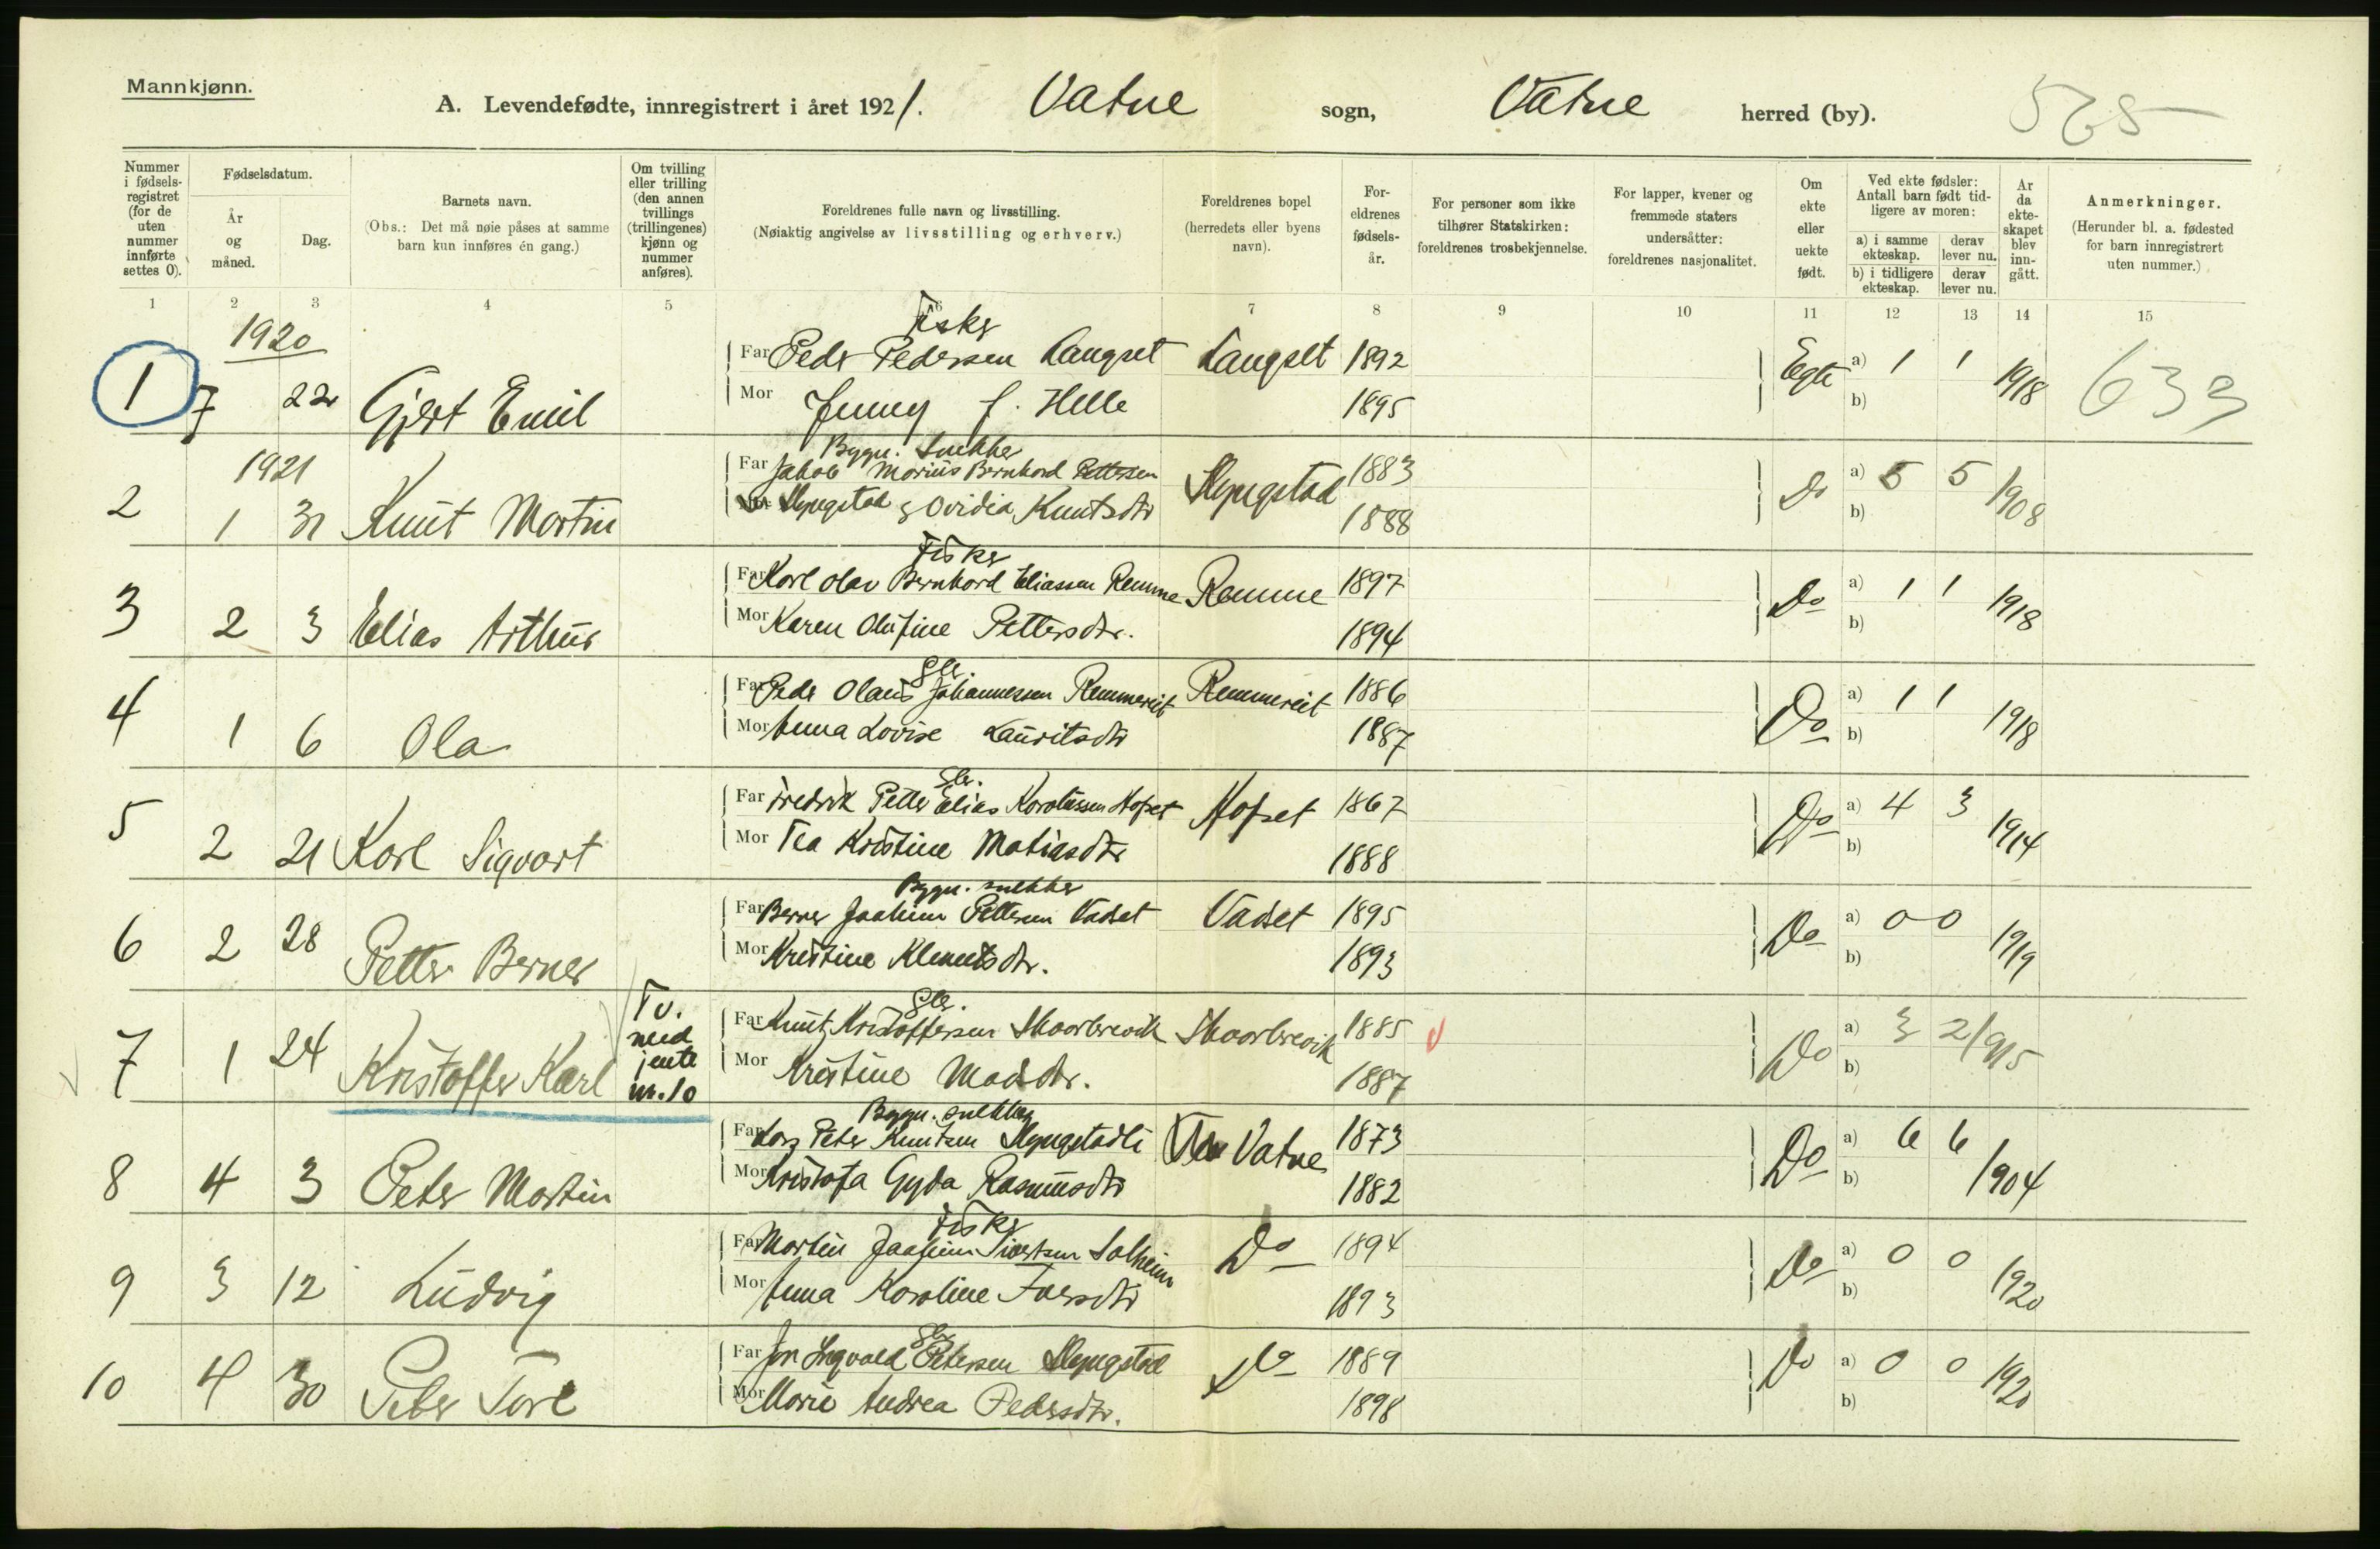 Mannkjønn.
A. Levendefødte, innregistrert i året 1921. Vatne sogn, Vatne herred (by). 565
Nummer i fødsels-registret (for de uten nummer innførte settes 0).
Fødselsdatum.
År og måned.
Dag.
Barnets navn.
(Obs.: Det må nøie påses at samme barn kun innføres én gang.)
Om tvilling eller trilling (den annen tvillings (trillingenes) kjønn og nummer anføres).
Foreldrenes fulle navn og livsstilling.
(Nøiaktig angivelse av livsstilling og erhverv.)
Foreldrenes bopel
(herredets eller byens navn).
For-eldrenes fødsels-år.
For personer som ikke tilhører Statskirken: foreldrenes trosbekjennelse.
For lapper, kvener og fremmede staters undersåtter: foreldrenes nasjonalitet.
Om ekte eller uekte født.
Ved ekte fødsler: Antall barn født tid-ligere av moren:
a) i samme ekteskap. derav lever nu.
b) i tidligere ekteskap. derav lever nu.
År da ekte-skapet blev inn-gått.
Anmerkninger.
(Herunder bl. a. fødested for barn innregistrert uten nummer.)
1 2 3 4 5 6 7 8 9 10 11 12 13 14 15
1920 Fisker
1 7 22 Gjert Emil Far Peder Pedersen Langset Langset 1892 Egte a) 1 1 1918 633
Mor Jenny f. Helle 1895 b)
1921 Bygn. Snekker
2 1 31 Knut Martin Far Jakob Marius Bernhard Pettersen Slyngstad 1883 Do a) 5 5 1908
Mor Slyngstad g Ovidia Knutsdtr 1888 b)
Fisker
3 2 3 Elias Arthur Far Karl Olav Bernhard Eliassen Remme Remme 1897 Do a) 1 1 1918
Mor Karen Olufine Pettersdtr. 1894 b)
Gbr.
4 1 6 Ola Far Peder Olaus Johannessen Remmereit Remmereit 1886 Do a) 1 1 1918
Mor Anna Lovise Lauritsdtr 1887 b)
Gbr.
5 2 21 Karl Sigvart Far Fredrik Petter Elias Karolussen Hofset Hofset 1867 Do a) 4 3 1914
Mor Tea Kristine Matiasdtr 1888 b)
Bygn. snekker
6 2 28 Petter Berner Far Berner Joakim Pettersen Vadset Vadset 1895 Do a) 0 0 1919
Mor Kristine Klementsdtr. 1893 b)
Gbr.
7 1 24 Kristoffer Karl Tv. med jente nr. 10 Far Knut Kristoffersen Skaarbrevik Skaarbrevik 1885 Do a) 3 2 1915
Mor Kristine Madsdtr. 1887 b)
Bygn. snekker
8 4 3 Peter Martin Far Lars Peter Knutsen Slyngstadli Vatne 1873 Do a) 6 6 1904
Mor Kristofa Gyda Rasmusdtr 1882 b)
Fisker
9 3 12 Ludvig Far Martin Joakim Sivertsen Solheim Do 1894 Do a) 0 0 1920
Mor Anna Karoline Iversdtr 1893 b)
Gbr
10 4 30 Peter Tore Far Jon Ingvald Petersen Slyngstad Do 1889 Do a) 0 0 1920
Mor Marie Andrea Pedersdtr. 1898 b)